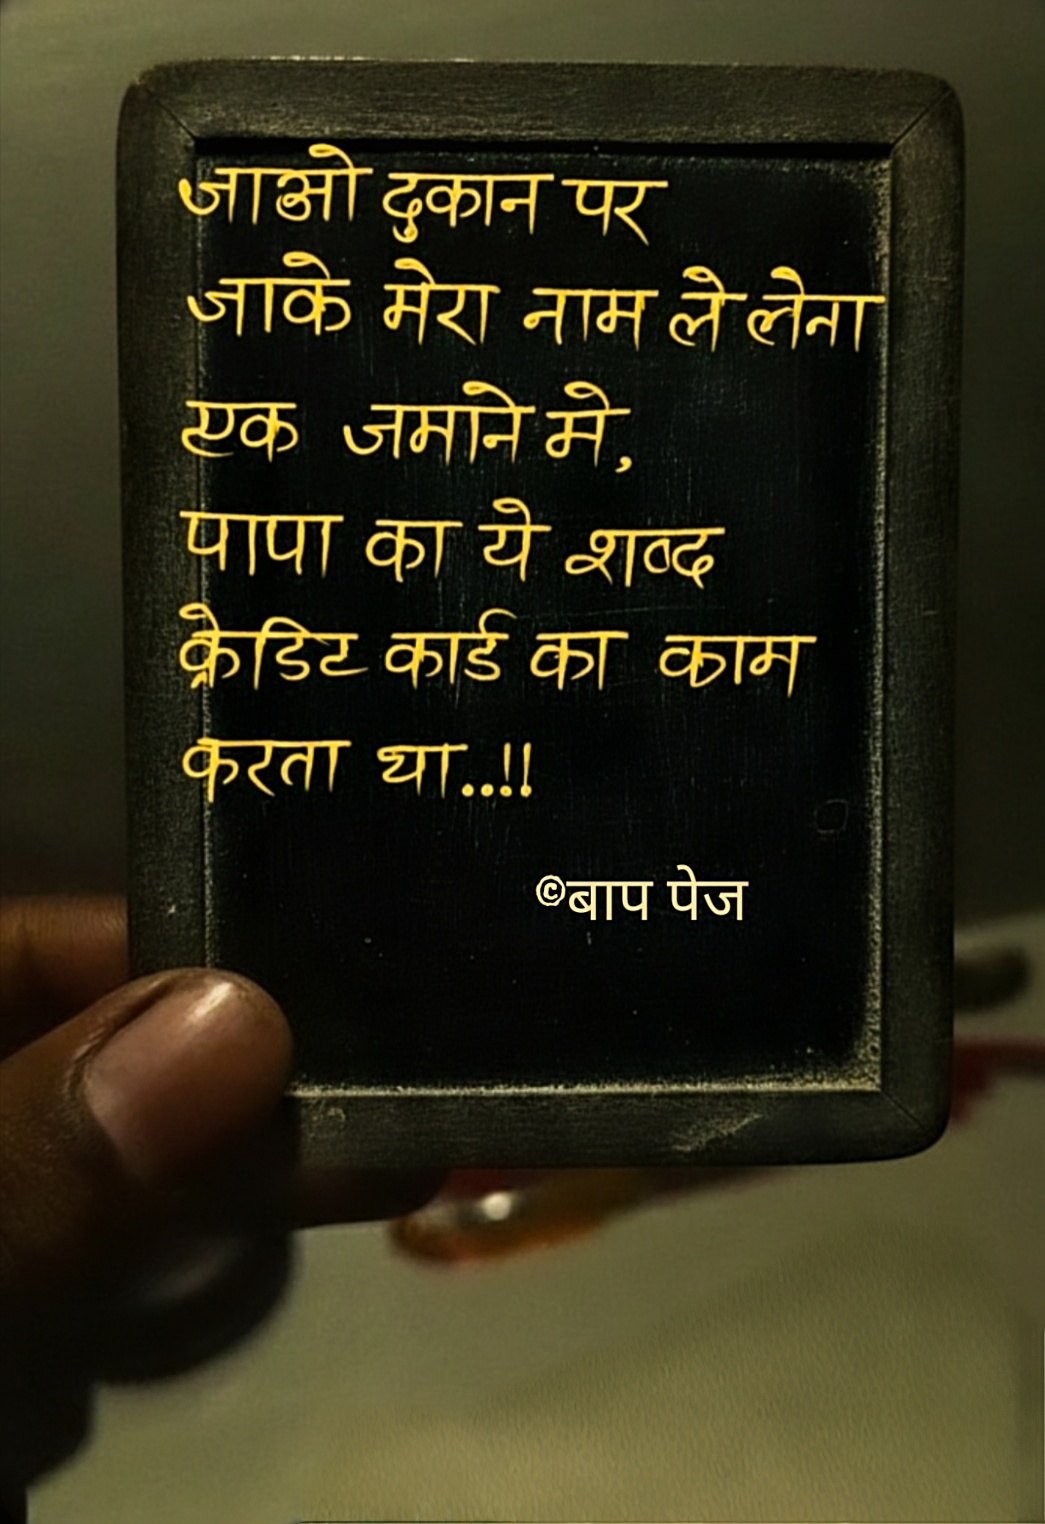 जाओ दुकान पर
जाके मेरा नाम ले लेना
एक जमाने मे,
पापा का ये शब्द
क्रेडिट कार्ड का काम
करता था..!!
©बाप पेज